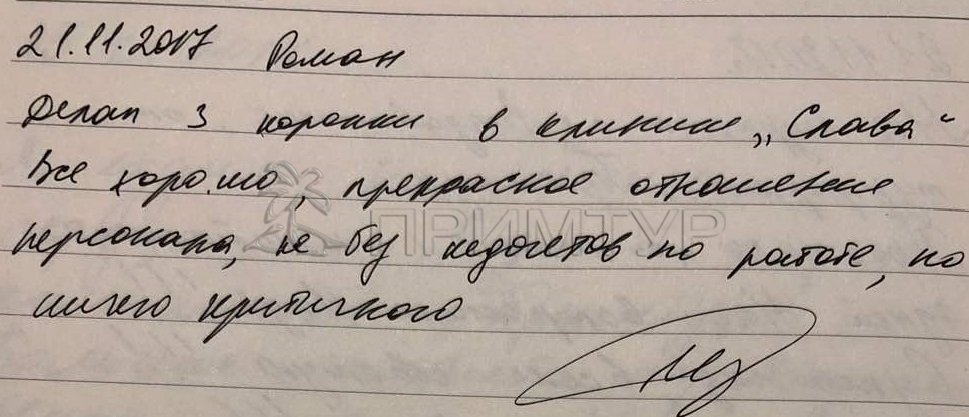 21.11.2017 Роман
Делал 3 коронки в клинике „Слава“
Все хорошо, прекрасное отношение
ПРИМТУР
персонала, не без недочетов по работе, но
ничего критичного